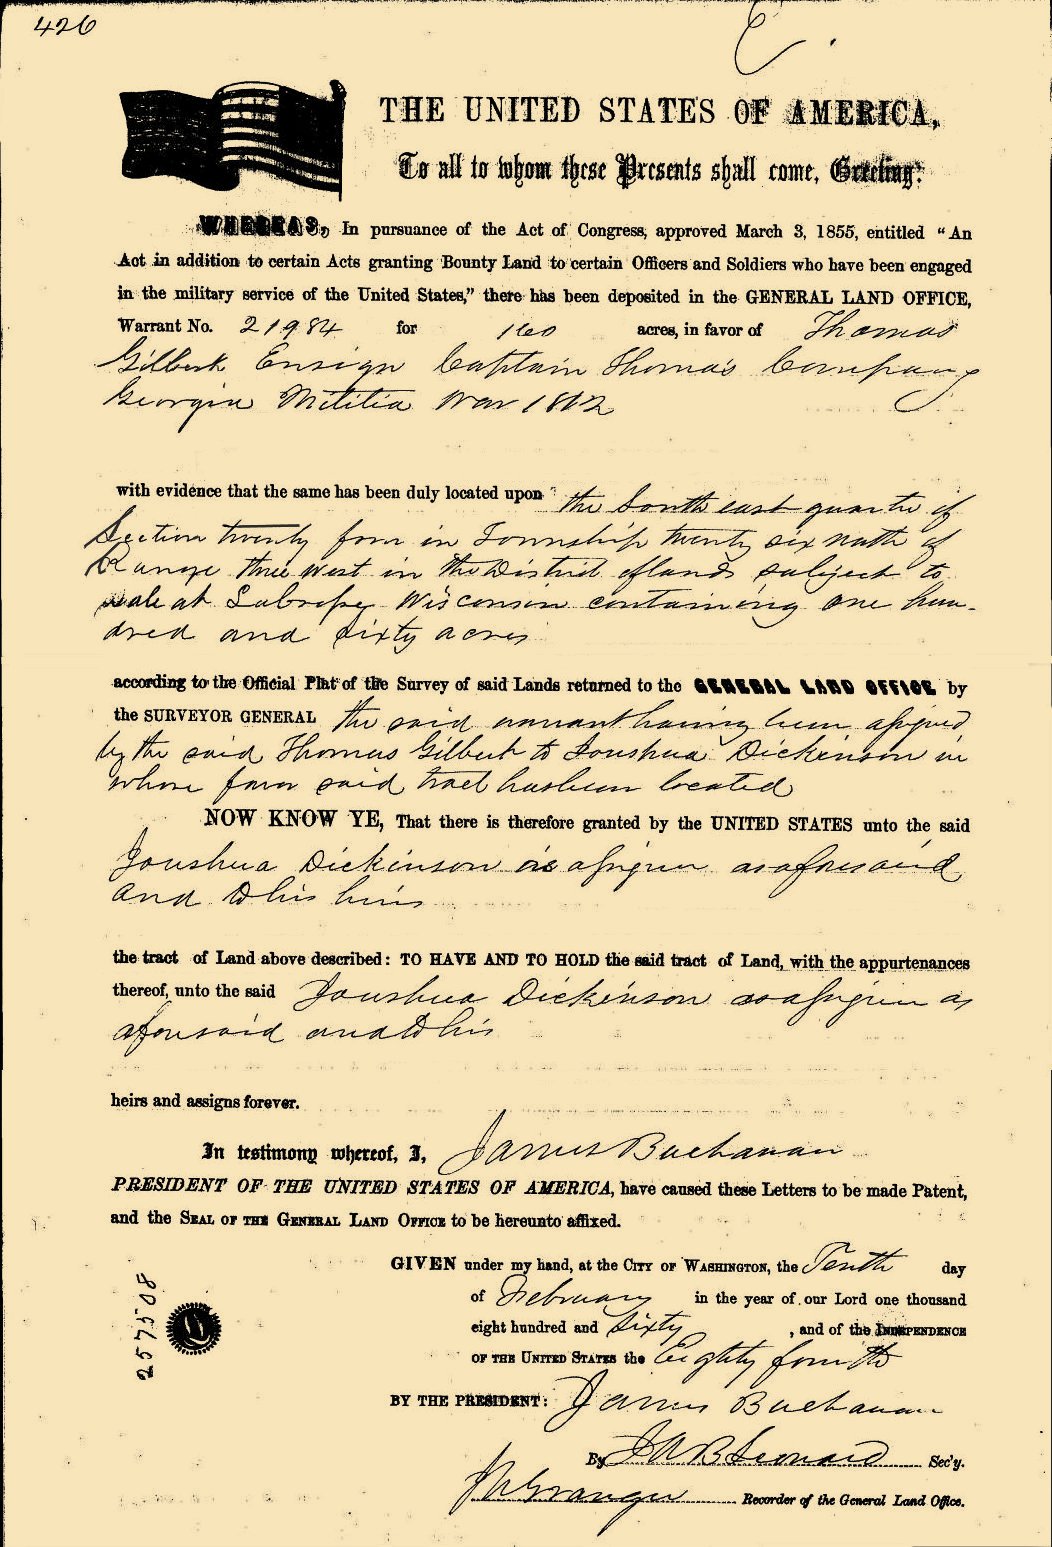 426
THE UNITED STATES OF AMERICA,
To all to whom these Presents shall come, Greeting:
WHEREAS, In pursuance of the Act of Congress, approved March 3, 1855, entitled "An
Act in addition to certain Acts granting Bounty Land to certain Officers and Soldiers who have been engaged
in the military service of the United States," there has been deposited in the GENERAL LAND OFFICE,
Warrant No. 21984 for 160 acres, in favor of Thomas
Gilbert Ensign Captain Thomas's Company
Georgia Militia War 1812
with evidence that the same has been duly located upon the South east quarter of
Section twenty four in Township twenty six north of
Range three west in the District of lands subject to
sale at Lacrosse Wisconsin containing one hun-
dred and sixty acres
according to the Official Plat of the Survey of said Lands returned to the GENERAL LAND OFFICE by
the SURVEYOR GENERAL the said warrant having been assigned
by the said Thomas Gilbert to Joushua Dickinson in
whose favor said tract has been located
NOW KNOW YE, That there is therefore granted by the UNITED STATES unto the said
Joushua Dickinson as assignee as aforesaid
and to his heirs
the tract of Land above described: TO HAVE AND TO HOLD the said tract of Land, with the appurtenances
thereof, unto the said Joushua Dickinson as assignee as
aforesaid and to his
heirs and assigns forever.
In testimony whereof, I, James Buchanan
PRESIDENT OF THE UNITED STATES OF AMERICA, have caused these Letters to be made Patent,
and the SEAL OF THE GENERAL LAND OFFICE to be hereunto affixed.
GIVEN under my hand, at the CITY OF WASHINGTON, the Tenth day
of February in the year of our Lord one thousand
eight hundred and Sixty, and of the INDEPENDENCE
OF THE UNITED STATES the Eighty fourth
BY THE PRESIDENT: James Buchanan
By J A B Leonard Sec'y.
J N Granger Recorder of the General Land Office.
257508